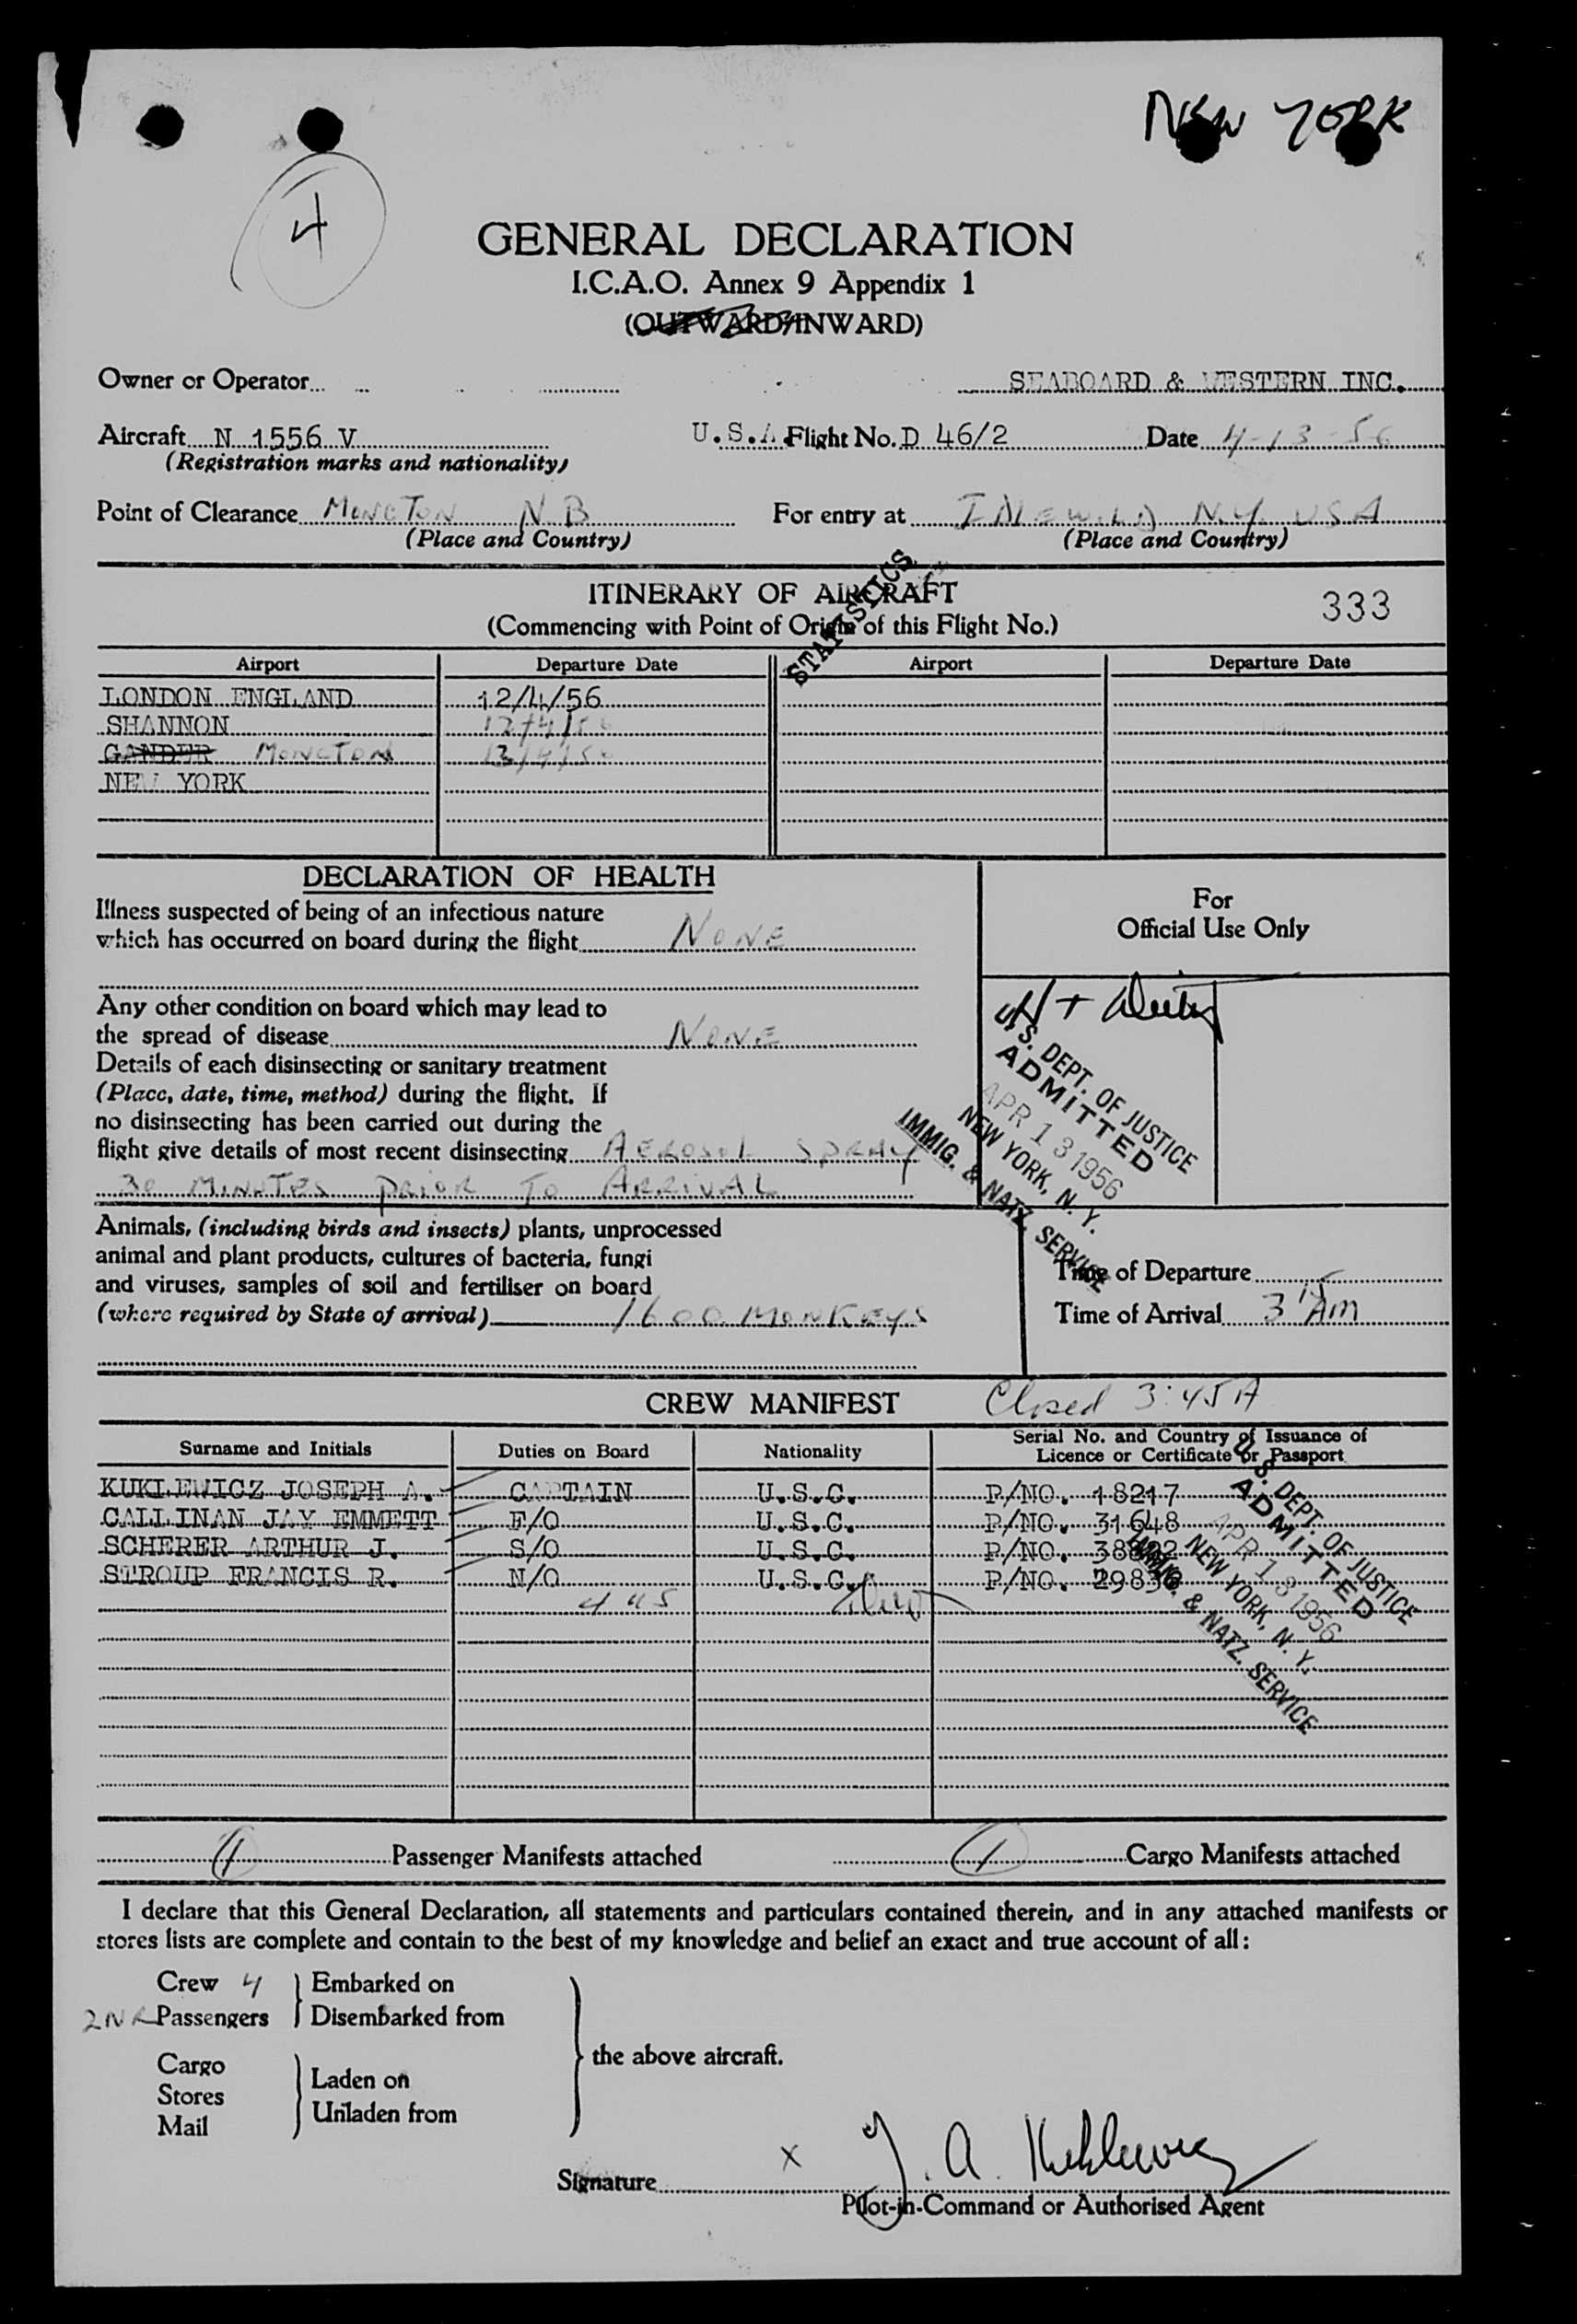 NEW YORK
4
GENERAL DECLARATION
I.C.A.O. Annex 9 Appendix 1
(OUTWARD/INWARD)
Owner or Operator SEABOARD & WESTERN INC.
Aircraft N 1556 V U.S.A. Flight No. D 46/2 Date 4-13-56
(Registration marks and nationality)
Point of Clearance MONCTON N B For entry at IDLEWILD N.Y. USA
(Place and Country) (Place and Country)
STATISTICS
ITINERARY OF AIRCRAFT
333
(Commencing with Point of Origin of this Flight No.)
Airport Departure Date Airport Departure Date
LONDON ENGLAND 12/4/56
SHANNON 12/4/56
GANDER MONCTON 13/4/56
NEW YORK
DECLARATION OF HEALTH
For
Official Use Only
Illness suspected of being of an infectious nature
which has occurred on board during the flight NONE
Any other condition on board which may lead to
the spread of disease NONE
Details of each disinsecting or sanitary treatment
(Place, date, time, method) during the flight. If
no disinsecting has been carried out during the
flight give details of most recent disinsecting AEROSOL SPRAY
30 MINUTES PRIOR TO ARRIVAL
U.S. DEPT. OF JUSTICE
ADMITTED
APR 13 1956
NEW YORK, N.Y.
IMMIG. & NATZ. SERVICE
Animals, (including birds and insects) plants, unprocessed
animal and plant products, cultures of bacteria, fungi
and viruses, samples of soil and fertiliser on board
(where required by State of arrival) 1600 MONKEYS
Time of Departure
Time of Arrival 3 15 AM
CREW MANIFEST Closed 3:45A
Surname and Initials Duties on Board Nationality Serial No. and Country of Issuance of
Licence or Certificate or Passport
KUKLEWICZ JOSEPH A. CAPTAIN U.S.C. P/NO. 18217
CALLINAN JAY EMMETT F/O U.S.C. P/NO. 31648
SCHERER ARTHUR J. S/O U.S.C. P/NO.
STROUP FRANCIS R. N/O U.S.C. P/NO.
4 US
U.S. DEPT. OF JUSTICE
ADMITTED
APR 13 1956
NEW YORK, N.Y.
IMMIG. & NATZ. SERVICE
1 Passenger Manifests attached 1 Cargo Manifests attached
I declare that this General Declaration, all statements and particulars contained therein, and in any attached manifests or
stores lists are complete and contain to the best of my knowledge and belief an exact and true account of all:
Crew 4 Embarked on
2 NR Passengers Disembarked from
the above aircraft.
Cargo
Stores Laden on
Mail Unladen from
Signature X J. A. Kuklewicz
Pilot-in-Command or Authorised Agent